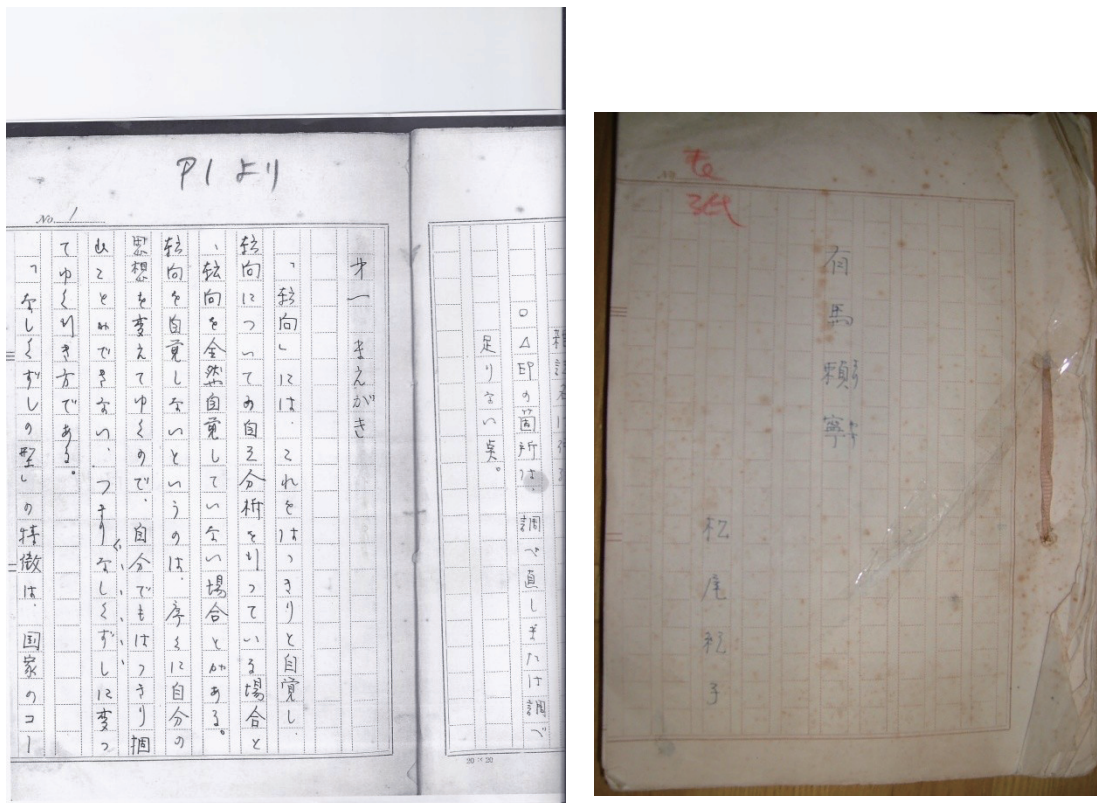 P1より
No. 1
才一 まえがき
「転向」には、これをはっきりと自覚し、
転向についての自己分析をもっている場合と
、転向を全然自覚していない場合とがある。
転向を自覚しないというのは、序々に自分の
思想を変えてゆくので、自分でもはっきり掴
むことができない、つまりなしくずしに変っ
てゆく行き方である。
「なしくずしの型」の特徴は、国家のコー
○△印の箇所は、調べ直しまたは調べ
足りない点。
20×20
No.
表
紙
有馬頼寧
松尾紀子